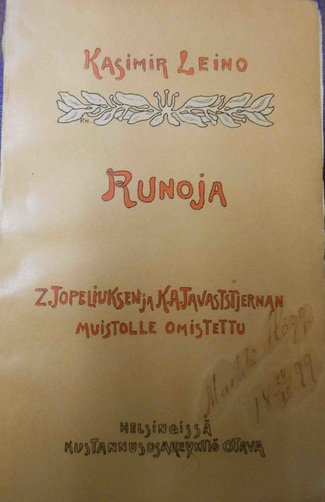 KASIMIR LEINO
RUNOJA
Z. TOPELIUKSEN JA K. A. TAVASTSTJERNAN
MUISTOLLE OMISTETTU
HELSINGISSÄ
KUSTANNUSOSAKEYHTIÖ OTAVA